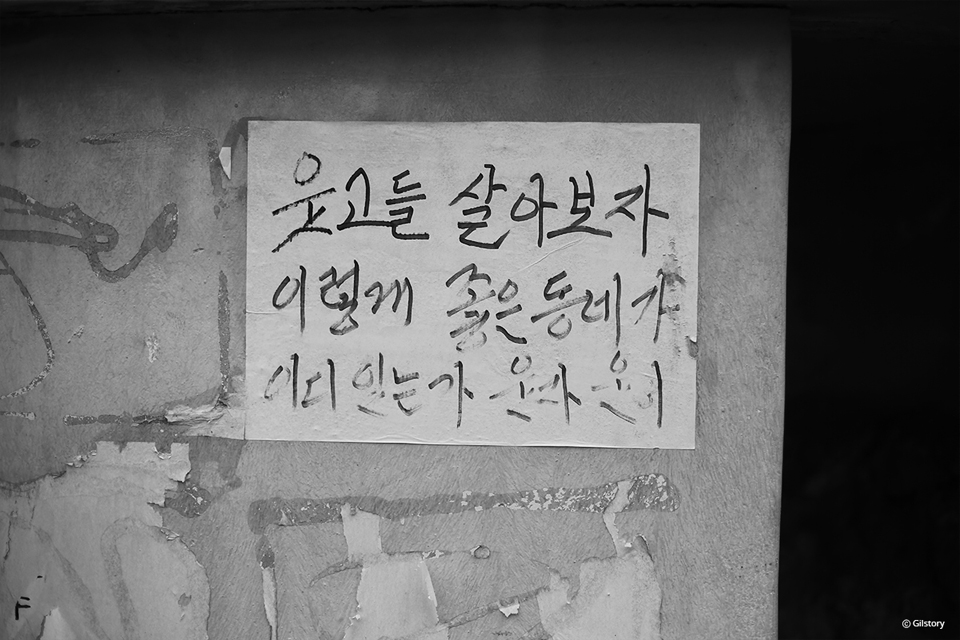 웃고들 살아보자
이렇게 좋은동네가
어디 인는가
F
© Gilstory